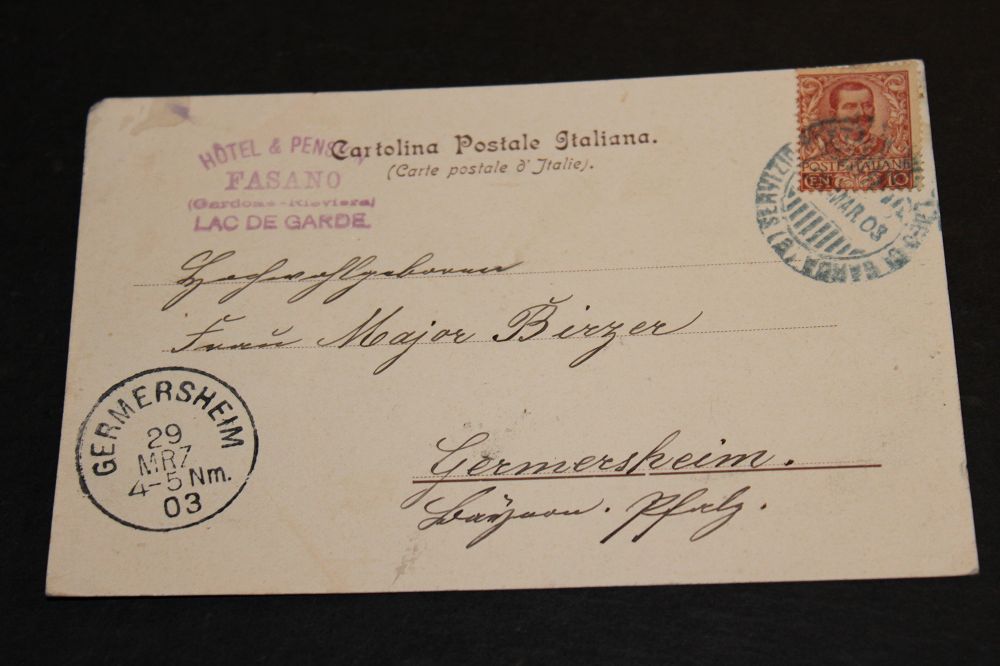 Cartolina Postale Italiana.
(Carte postale d'Italie).
HÔTEL & PENS
FASANO
(Gardone-Riviera)
LAC DE GARDE.
POSTE ITALIANE
CEN 10
SERVIZIO
MAR 03
Hochwohlgeboren
Frau Major Birzer
Germersheim.
Bayern. Pfalz.
GERMERSHEIM
29
MRZ
4-5 Nm.
03